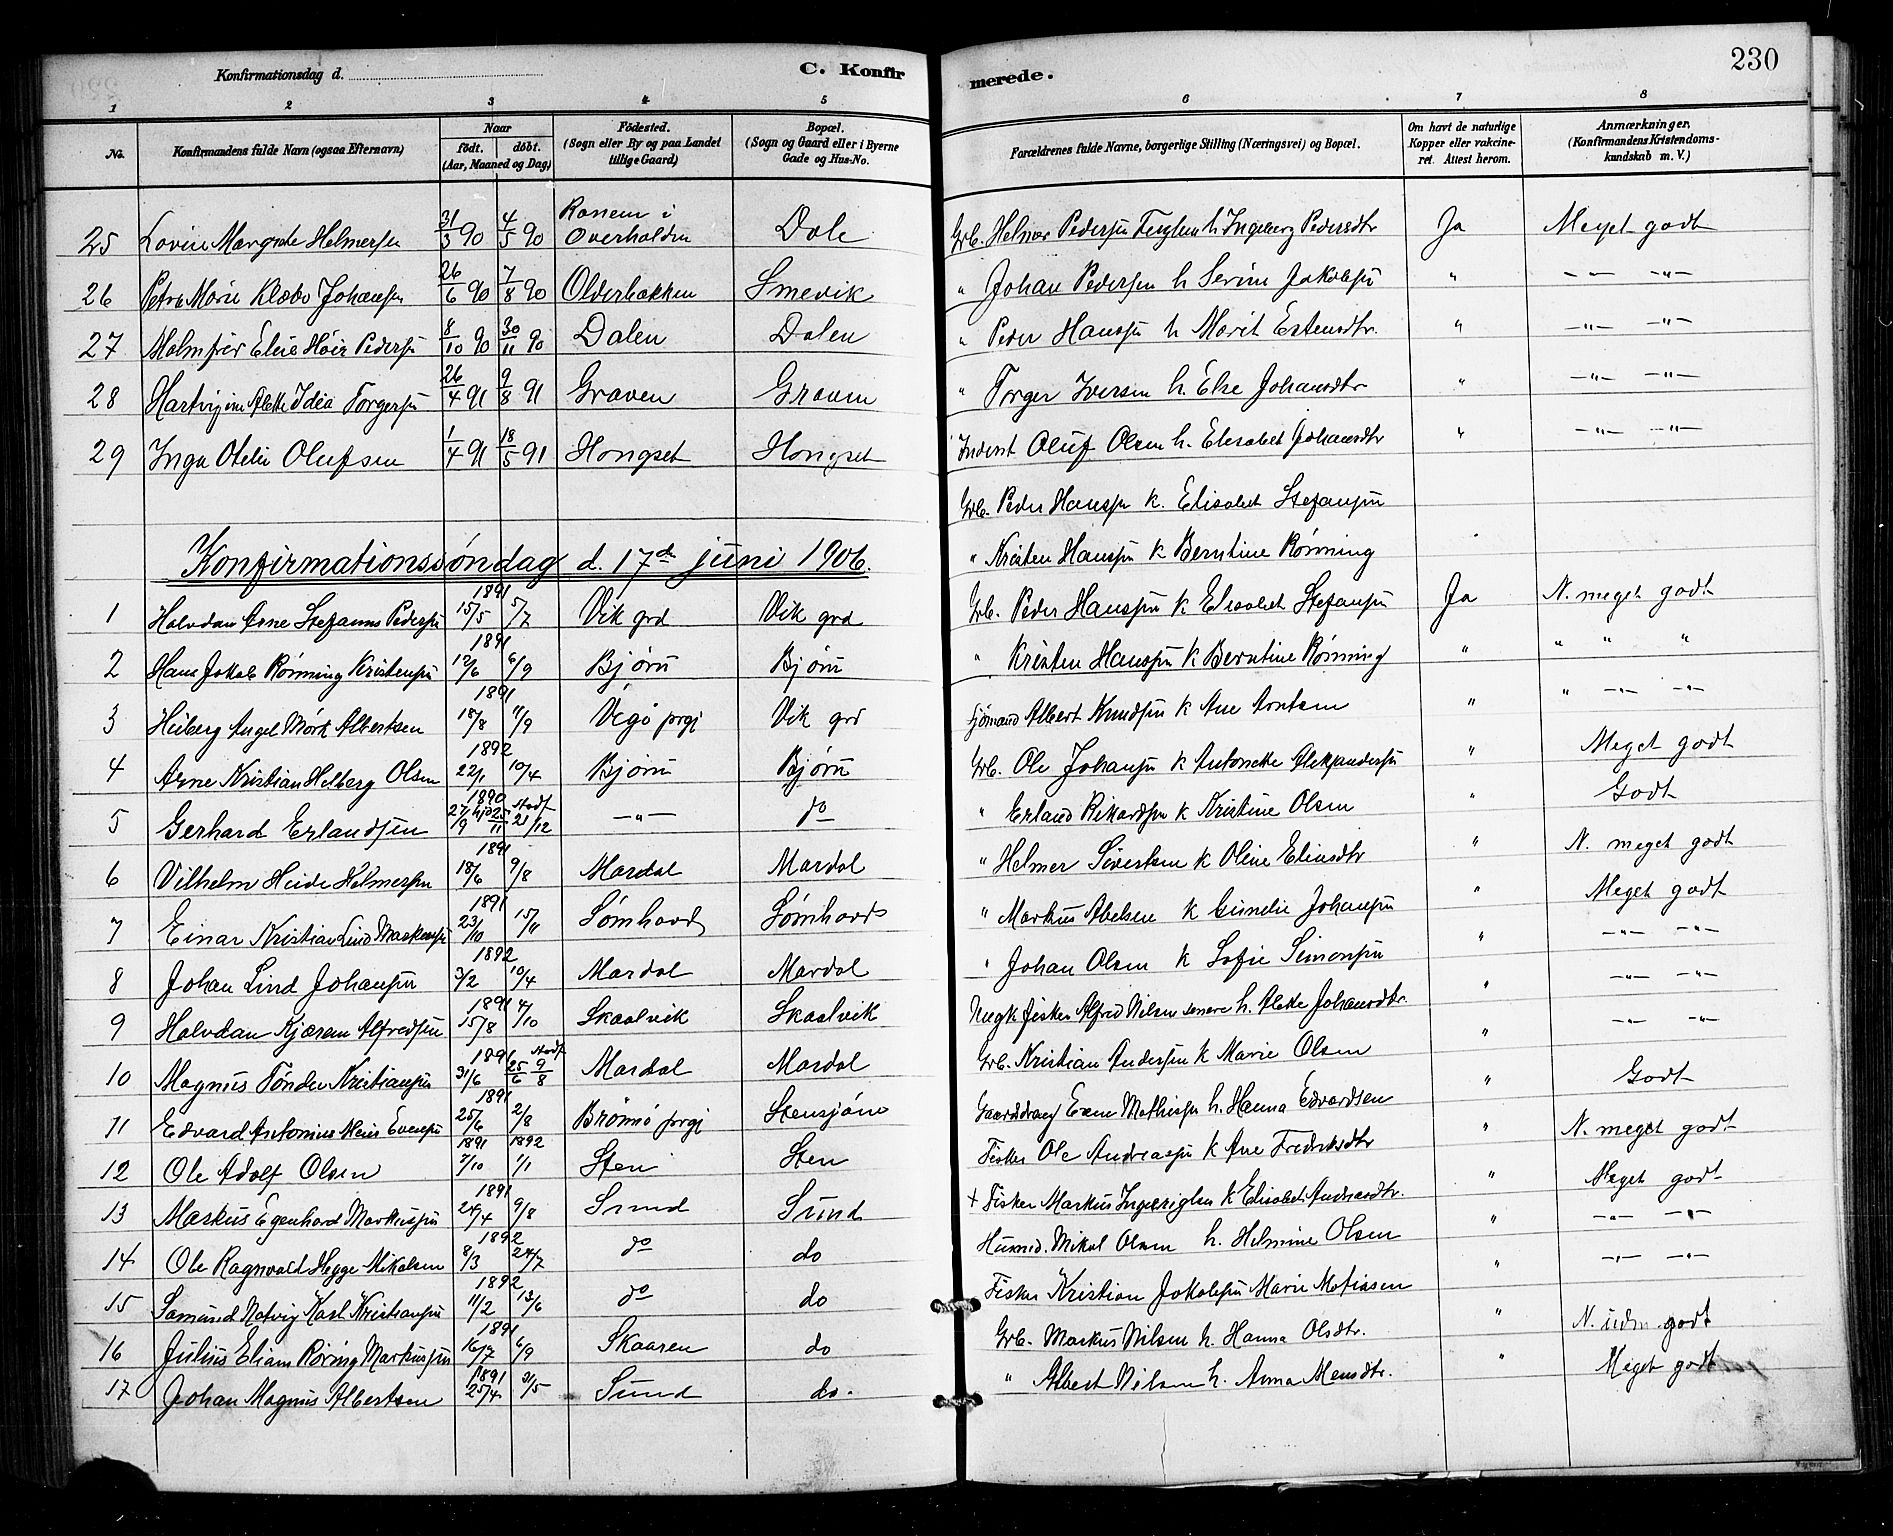 230
Konfirmationsdag d.
C. Konfirmerede.
1 2 3 4 5 6 7 8
No. Konfirmandens fulde Navn (ogsaa Efternavn) Naar født. døbt. (Aar, Maaned og Dag) Fødested. (Sogn eller By og paa Landet tillige Gaard) Bopæl. (Sogn og Gaard eller i Byerne Gade og Hus-No. Forældrenes fulde Navne, borgerlige Stilling (Næringsvei) og Bopæl. Om havt de naturlige Kopper eller vakcineret. Attest herom. Anmærkninger, (Konfirmandens Kristendomskundskab m. V.)
25 Lovise Margrete Helmersen 31/3 90 4/5 90 Ranem i Overhalden Dale Grb. Helmer Pedersen h Ingeborg Pedersdtr Ja Meget godt
26 Petra Marie Klæbo Johansen 26/6 90 7/8 90 Olderbakken Smevik " Johan Pedersen h Serine Jakobsen " -"- -"-
27 Malmfrid Elise Høie Pedersen 8/10 90 30/11 90 Dalen Dalen " Peder Hansen h Marit Estensdtr. " -"- -"-
28 Hartvigine Alette Idea Torgersen 26/4 91 9/8 91 Graven Graven " Torger Iversen h. Else Johansdtr " -"- -"-
29 Inga Otelie Olufsen 1/4 91 18/5 91 Hongset Hongset Inderst Oluf Olsen h. Elisabet Johansdtr " -"- -"-
Grb. Peder Hansen k. Elisabet Stefansen
Konfirmationssøndag d. 17de juni 1906.
" Kristen Hansen k Berntine Rønning
1 Halvdan Arne Stefanus Pedersen 1891 15/5 5/7 Vik grd Vik grd Grb. Peder Hansen k Elisabet Stefansen Ja N. meget godt
2 Hans Jakob Rønning Kristensen 1891 12/6 6/9 Bjørn Bjørn " Kristen Hansen k Berntine Rønning " " " "
3 Heiberg Angel Mørk Albertsen 1891 18/8 11/9 Vegø prgj Vik grd Sjømand Albert Knudsen k Ane Arntsen " " -"- -"-
4 Arne Kristian Helberg Olsen 1892 22/1 10/4 Bjørn Bjørn Grb. Ole Johansen k Antonette Aleksandersen " Meget godt
5 Gerhard Erlandsen 1890 27/9 25/11 Stadf 21/12 -"- do " Erland Rikardsen k Kristine Olsen " Godt
6 Vilhelm Heide Helmersen 1891 18/6 9/8 Mardal Mardal " Helmer Sivertsen k Oline Eliasdtr " N. meget godt
7 Einar Kristian Lind Markussen 1891 23/10 15/11 Sømhovd Sømhovd " Markus Abelsen k Gunelie Johansen " Meget godt
8 Johan Lind Johansen 1892 3/2 10/4 Mardal Mardal " Johan Olsen k Sofie Simonsen " -"- -"-
9 Halvdan Kjæran Alfredsen 1891 15/8 4/10 Skaalvik Skaalvik Ungk fisker Alfred Nilsen senere h. Alette Johansdtr. " -"- -"-
10 Magnus Tønder Kristiansen 1891 31/6 25/6 Stadf 9/8 Mardal Mardal Grb. Kristian Andersen k Marie Olsen " -"- -"-
11 Edvard Antonius Meus Evensen 1891 25/6 2/8 Brønnø prgj Stensjøen Gaarddreng Even Mathisen h. Hanna Edvardsen " Godt
12 Ole Adolf Olsen 1891 7/10 1892 1/1 Sten Sten Fisker Ole Andreasen k Ane Fredriksdtr " N. meget godt
13 Markus Egenhard Markussen 1891 24/4 9/8 Sund Sund + Fisker Markus k Elisabet Andreasdtr. " Meget godt
14 Ole Ragnvald Hegge Mikalsen 1892 8/3 24/7 do do Husmd. Mikal Olsen h. Helmine Olsen " -"- -"-
15 Samund Natvig Karl Kristiansen 1892 11/2 13/6 do do Fisker Kristian Jakobsen Marie Matiasen " -"- -"-
16 Julius Eliam Røring Markussen 1891 16/7 6/9 Skaaren do Grb. Markus Nilsen h. Hanna Olsdtr. " N. udm. godt
17 Johan Magnus Albertsen 1891 25/4 31/5 Sund do. " Albert Nilsen h. Anna Mensdtr. " Meget godt